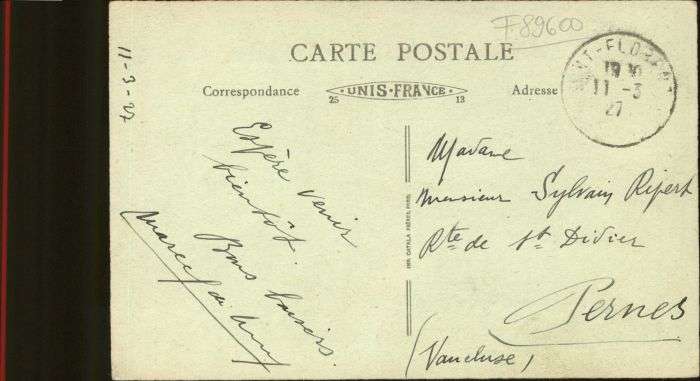 F89600
CARTE POSTALE
Correspondance
25 UNIS-FRANCE 13
Adresse
T-FLOR
11 - 3
27
11-3-27
Espère venir
bientôt.
Bons baisers.
Marcel
Madame
Monsieur Sylvain Ripert
Rte de St Didier
Pernes
(Vaucluse)
IMP. CATALA FRÈRES, PARIS